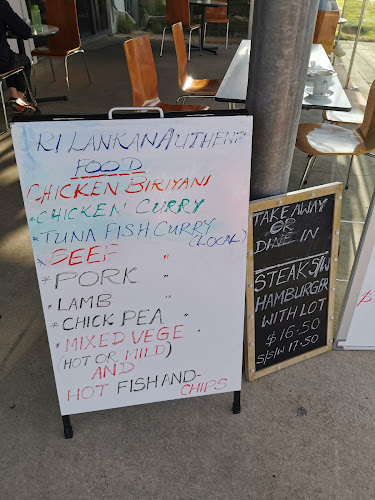 SRI LANKAN AUTHENT
FOOD
CHICKEN BIRIYANI
*CHICKEN CURRY
*TUNA FISH CURRY
(LOCAL)
*BEEF "
*PORK "
*LAMB "
*CHICK PEA "
*MIXED VEGE "
(HOT OR MILD)
AND
HOT FISH AND-
CHIPS
TAKE AWAY
OR
DINE IN
STEAK S/W
HAMBURGER
WITH LOT
$16.50
S/S/W 17.50